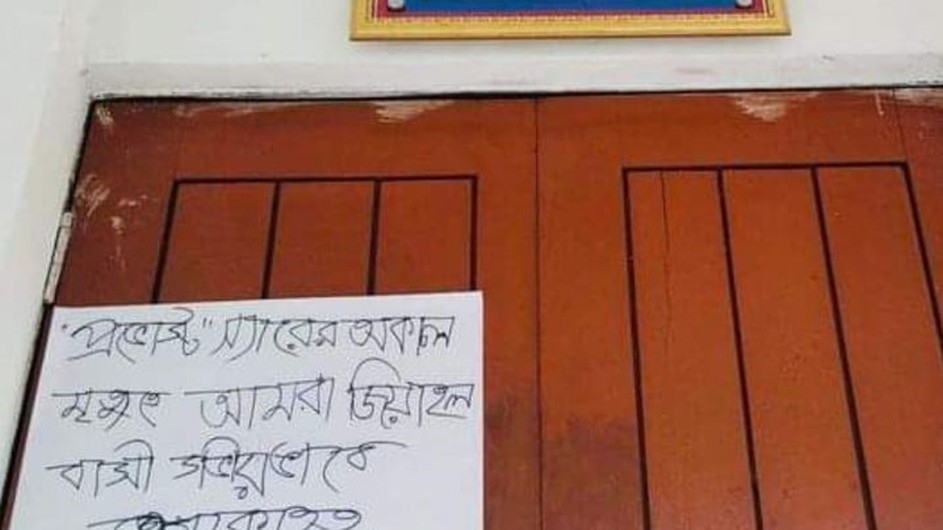 "প্রভোস্ট" স্যারের অকাল
মৃত্যুতে আমরা জিয়াহল
বাসী গভীরভাবে
শোকাহত